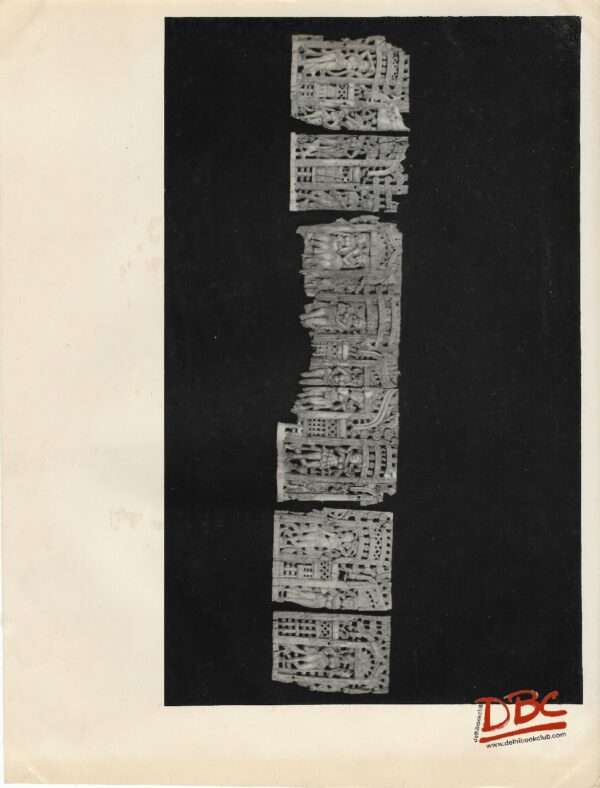 delhibookclub
DBC
www.delhibookclub.com